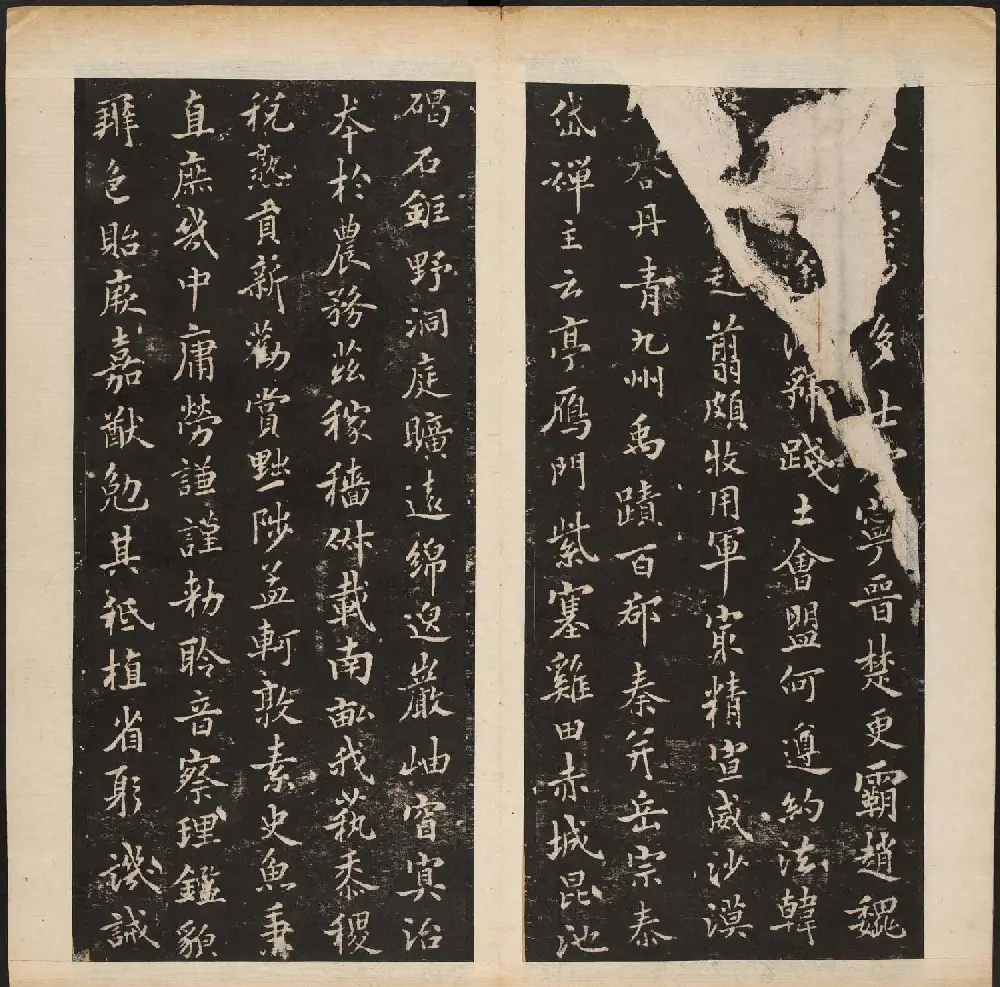 多士寧晉楚更霸趙魏
途虢踐土會盟何遵約法韓
起翦頗牧用軍冣精宣威沙漠
譽丹青九州禹蹟百郡秦并岳宗泰
岱禪主云亭鴈門紫塞雞田赤城昆池
碣石鉅野洞庭曠遠綿邈巖岫窅冥治
本於農務茲稼穡俶載南畝我蓺黍稷
稅熟貢新勸賞黜陟孟軻敦素史魚秉
直庶幾中庸勞謙謹勑聆音察理鑑貌
辨色貽厥嘉猷勉其祗植省躬譏誡